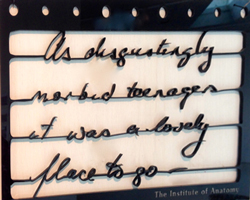 As disgustingly
morbid teenagers
it was a lovely
place to go –
The Institute of Anatomy